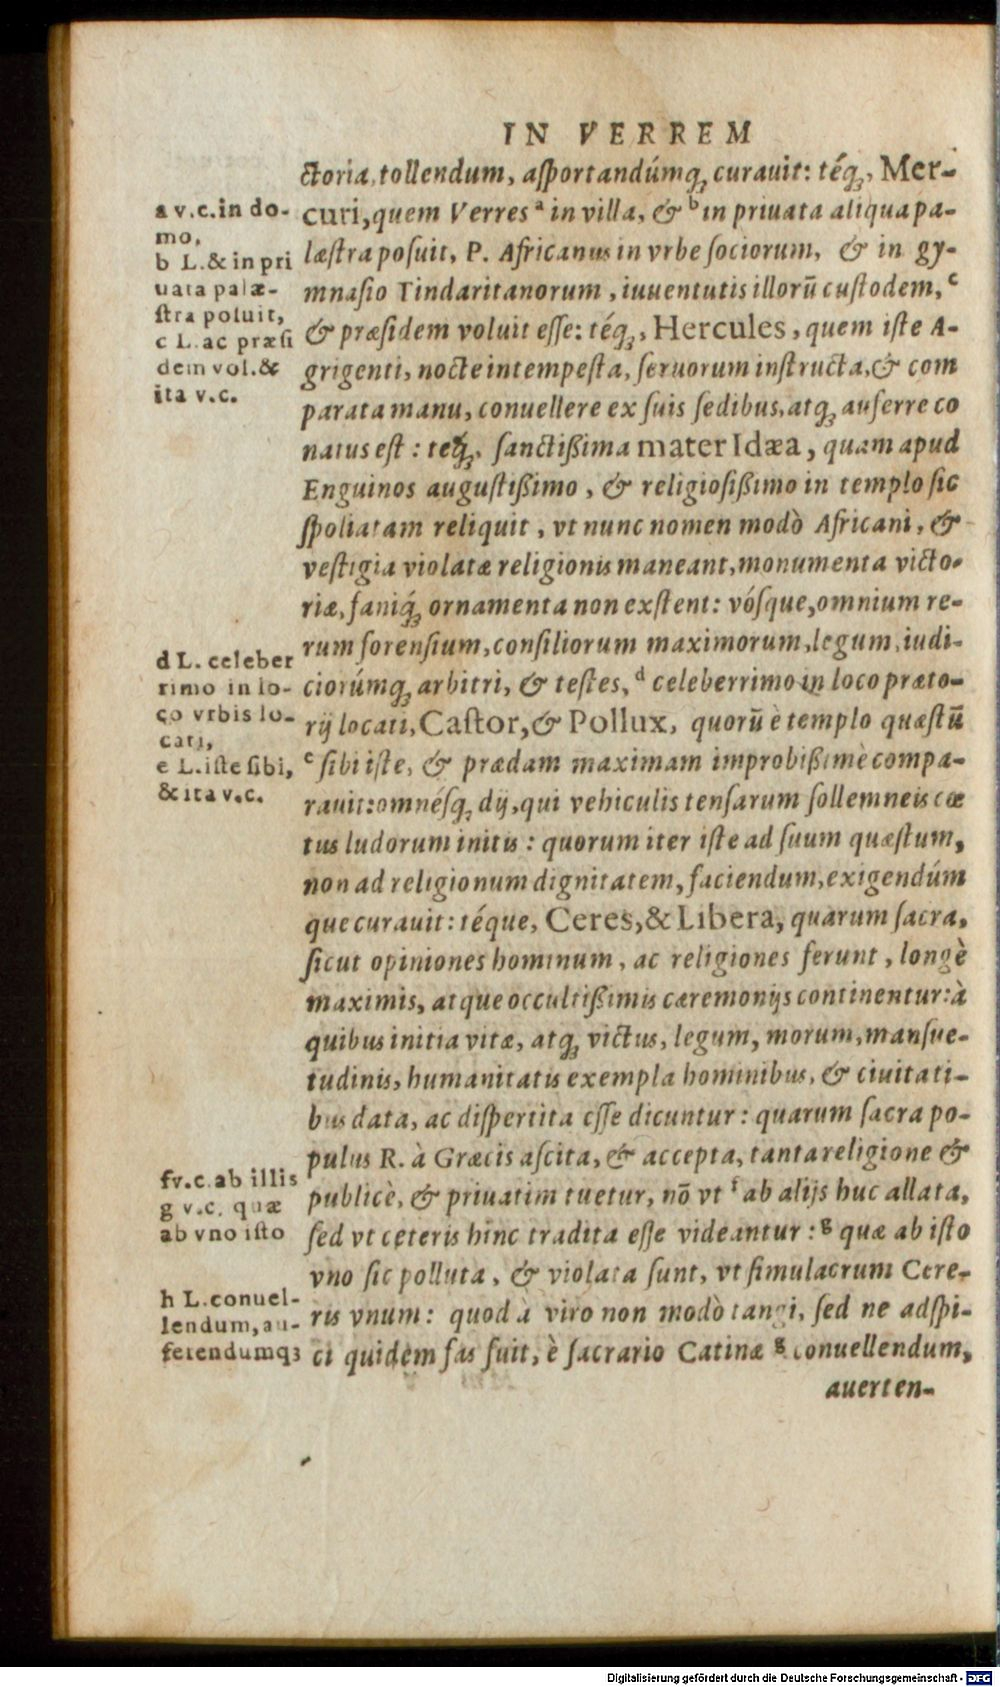 IN VERREM
ctoria, tollendum, asportandúmq; curauit: téq;, Mer-
curi, quem Verres ᵃ in villa, & ᵇ in priuata aliqua pa-
læstra posuit, P. Africanus in vrbe sociorum, & in gy-
mnasio Tindaritanorum, iuuentutis illorũ custodem, ᶜ
& præsidem voluit esse: téq;, Hercules, quem iste A-
grigenti, nocte intempesta, seruorum instructa, & com
parata manu, conuellere ex suis sedibus, atq; auferre co
natus est: teq;, sanctißima mater Idæa, quam apud
Enguinos augustißimo, & religiosißimo in templo sic
spoliatam reliquit, vt nunc nomen modò Africani, &
vestigia violatæ religionis maneant, monumenta victo-
riæ, faniq́; ornamenta non exstent: vósque, omnium re-
rum forensium, consiliorum maximorum, legum, iudi-
ciorúmq; arbitri, & testes, ᵈ celeberrimo in loco præto-
rij locati, Castor, & Pollux, quorũ è templo quæstũ
ᵉ sibi iste, & prædam maximam improbißimè compa-
rauit: omnésq; dij, qui vehiculis tensarum sollemneis cœ
tus ludorum initis: quorum iter iste ad suum quæstum,
non ad religionum dignitatem, faciendum, exigendúm
que curauit: téque, Ceres, & Libera, quarum sacra,
sicut opiniones hominum, ac religiones ferunt, longè
maximis, atque occultißimis cæremonijs continentur: à
quibus initia vitæ, atq; victus, legum, morum, mansue-
tudinis, humanitatis exempla hominibus, & ciuitati-
bus data, ac dispertita esse dicuntur: quarum sacra po-
pulus R. à Græcis ascita, & accepta, tanta religione &
publicè, & priuatim tuetur, nõ vt ᶠ ab alijs huc allata,
sed vt ceteris hinc tradita esse videantur: ᵍ quæ ab isto
vno sic polluta, & violata sunt, vt simulacrum Cere-
ris vnum: quod à viro non modò tangi, sed ne adspi-
ci quidem fas fuit, è sacrario Catinæ ᵍ conuellendum,
auerten-
a v.c. in do-
mo,
b L. & in pri
uata palæ-
stra posuit,
c L. ac præsi
dem vol. &
ita v.c.
d L. celeber
rimo in lo-
co vrbis lo-
cati,
e L. iste sibi,
& ita v.c.
f v.c. ab illis
g v.c. quæ
ab vno isto
h L. conuel-
lendum, au-
ferendumq;
Digitalisierung gefördert durch die Deutsche Forschungsgemeinschaft - DFG